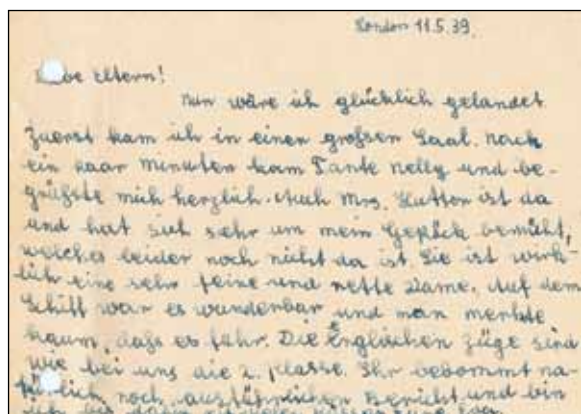 London 11.5.39.
Liebe Eltern!
Nun wäre ich glücklich gelandet
Zuerst kam ich in einen großen Saal. Nach
ein paar Minuten kam Tante Nelly und be-
grüßte mich herzlich. Auch Mrs. Hutton ist da
und hat sich sehr um mein Gepäck bemüht,
welches leider noch nicht da ist. Sie ist wirk-
lich eine sehr feine und nette Dame. Auf dem
Schiff war es wunderbar und man merkte
kaum, dass es fuhr. Die Englischen Züge sind
wie bei uns die 2. Klasse. Ihr bekommt na-
türlich noch ausführlichen Bericht und bin